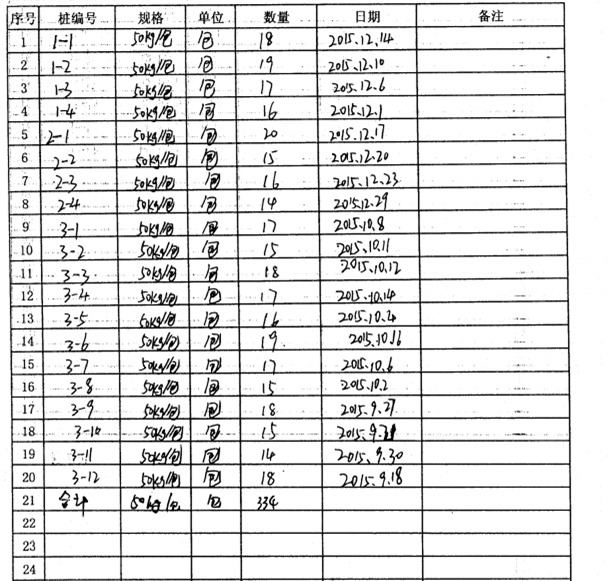 序号 桩编号 规格 单位 数量 日期 备注
1 1-1 50kg/包 包 18 2015.12.14
2 1-2 50kg/包 包 19 2015.12.10
3 1-3 50kg/包 包 17 2015.12.6
4 1-4 50kg/包 包 16 2015.12.1
5 2-1 50kg/包 包 20 2015.12.17
6 2-2 50kg/包 包 15 2015.12.20
7 2-3 50kg/包 包 16 2015.12.23
8 2-4 50kg/包 包 14 2015.12.29
9 3-1 50kg/包 包 17 2015.10.8
10 3-2 50kg/包 包 15 2015.10.11
11 3-3 50kg/包 包 18 2015.10.12
12 3-4 50kg/包 包 17 2015.10.14
13 3-5 50kg/包 包 16 2015.10.4
14 3-6 50kg/包 包 19 2015.10.16
15 3-7 50kg/包 包 17 2015.10.6
16 3-8 50kg/包 包 15 2015.10.2
17 3-9 50kg/包 包 18 2015.9.27
18 3-10 50kg/包 包 15
19 3-11 50kg/包 包 14 2015.9.30
20 3-12 50kg/包 包 18 2015.9.18
21 合计 50kg/包 包 334
22
23
24